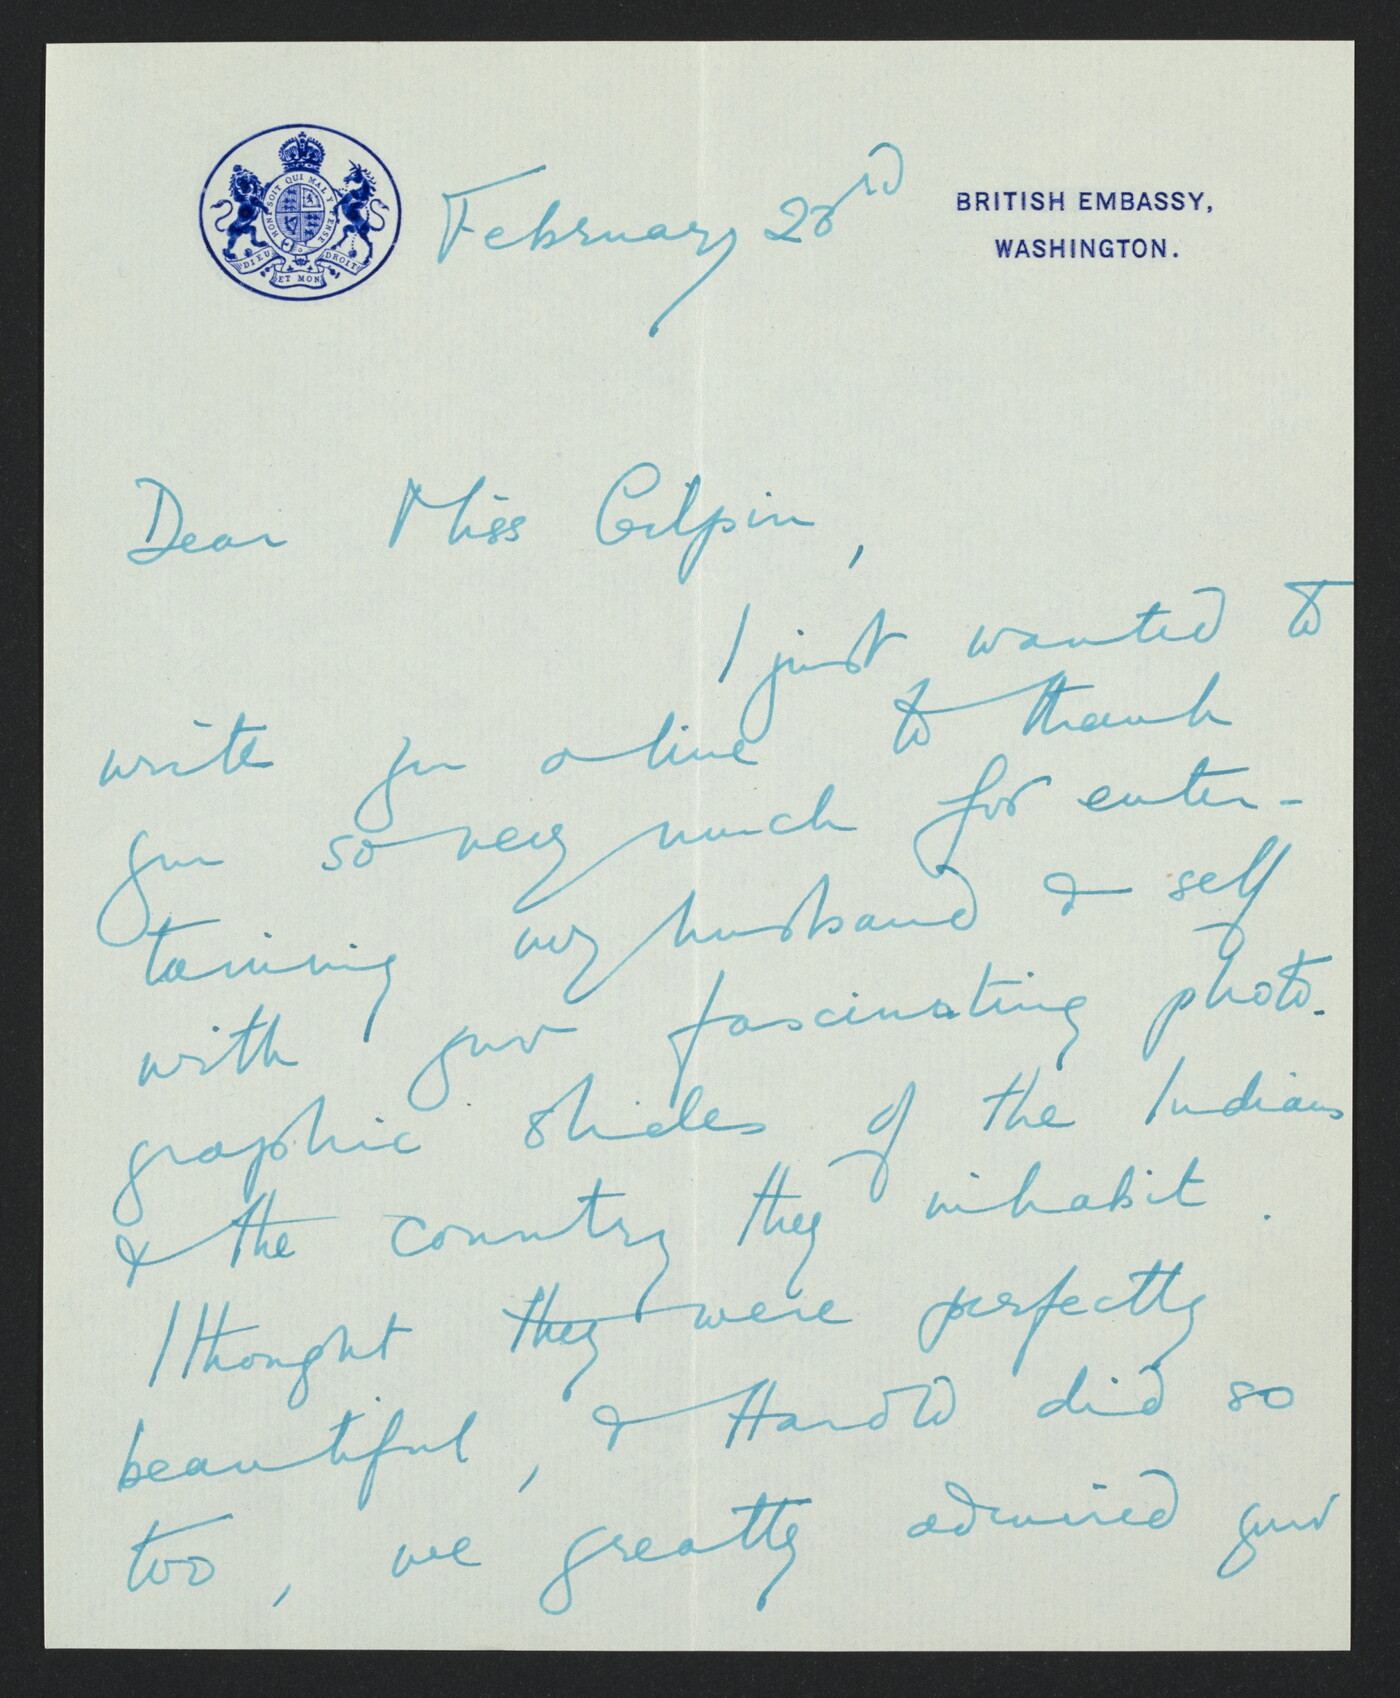 HONI SOIT QUI MAL Y PENSE
DIEU ET MON DROIT
February 23rd
BRITISH EMBASSY,
WASHINGTON.
Dear Miss Gilpin,
I just wanted to
write you a line to thank
you so very much for enter-
taining my husband & self
with your fascinating photo-
graphic slides of the Indians
& the country they inhabit.
I thought they were perfectly
beautiful, & Harold did so
too, we greatly admired your